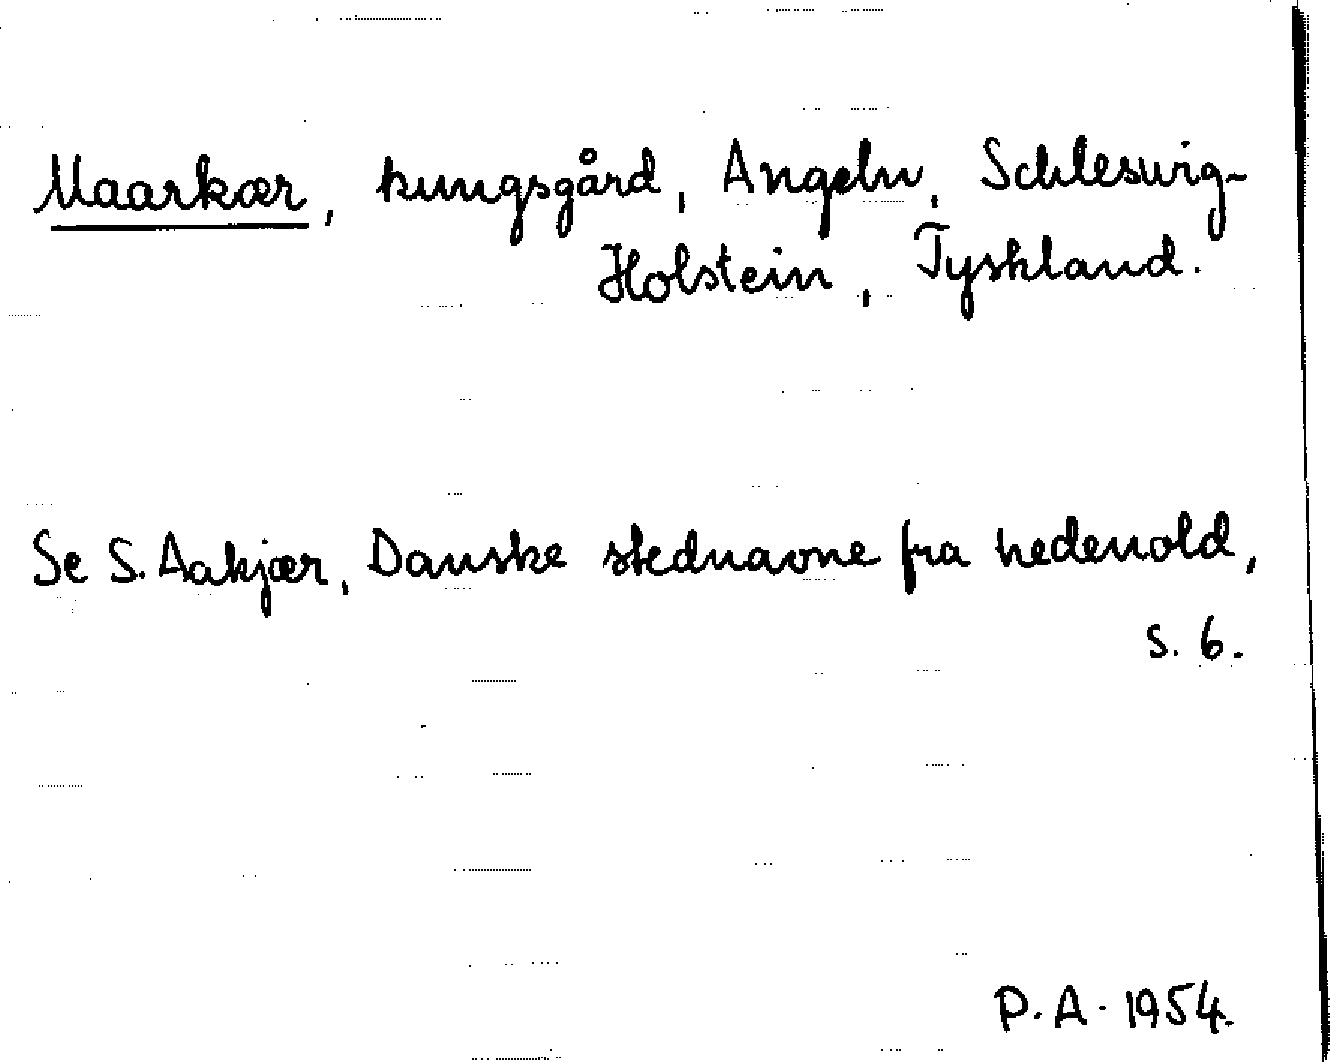 Maarkær, kungsgård, Angeln, Schleswig-
Holstein, Tyskland.
Se S. Aakjær, Danske stednavne fra hedenold,
s. 6.
P. A. 1954.